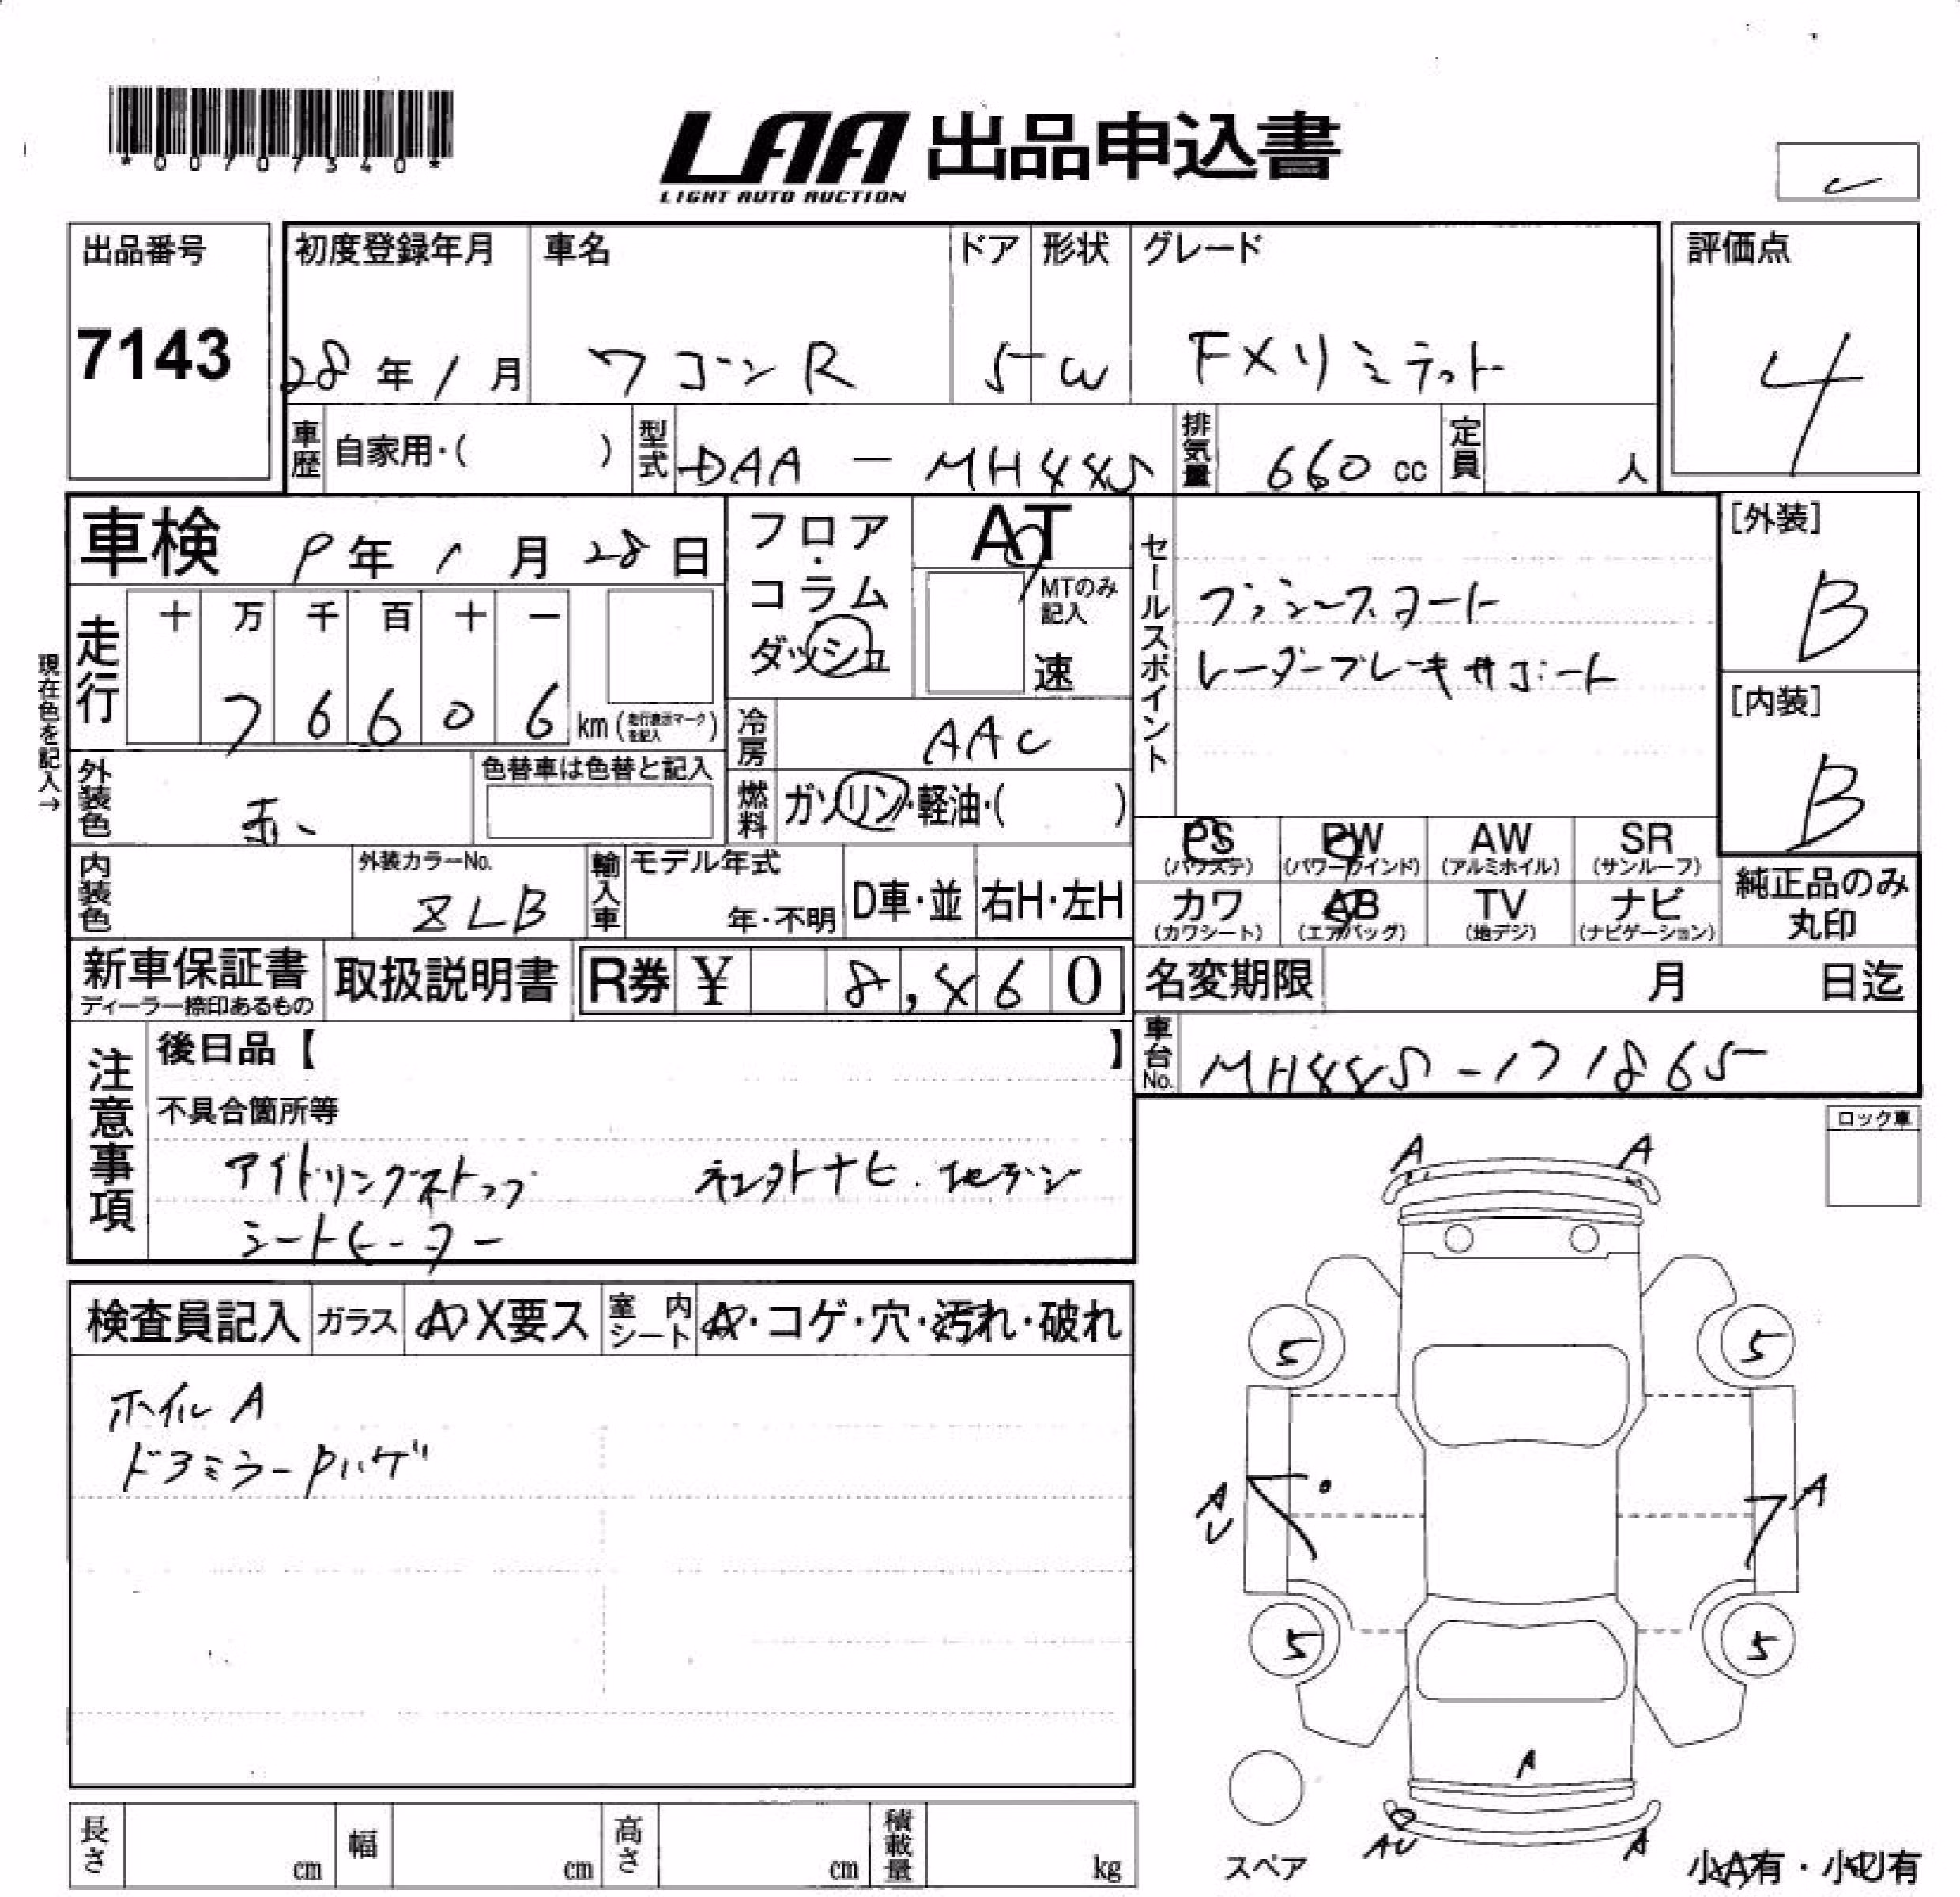 *00707340*
LAA 出品申込書
LIGHT AUTO AUCTION
出品番号
7143
初度登録年月
28年1月
車名
ワゴンR
ドア
5
形状
W
グレード
FXリミテット
評価点
4
車歴
自家用・( )
型式
DAA-MH44S
排気量
660 cc
定員
人
車検 9年1月28日
フロア・コラム
ダッシュ
AT
MTのみ記入
速
セールスポイント
プッシュスタート
レーダーブレーキサポート
[外装]
B
[内装]
B
現在色を記入→
走行
十 万 千 百 十 一
7 6 6 0 6 km (走行表示マークを記入)
冷房
AAC
外装色
赤
色替車は色替と記入
燃料
ガソリン・軽油・( )
PS
(パワステ)
PW
(パワーウインド)
AW
(アルミホイル)
SR
(サンルーフ)
内装色
外装カラーNo.
ZLB
輸入車
モデル年式
年・不明
D車・並
右H・左H
カワ
(カワシート)
AB
(エアバッグ)
TV
(地デジ)
ナビ
(ナビゲーション)
純正品のみ
丸印
新車保証書
ディーラー捺印あるもの
取扱説明書
R券 ¥ 8,460
名変期限 月 日迄
車台No.
MH44S-171865
注意事項
後日品【 】
不具合箇所等
アイドリングストップ
ナビ. 地デジ
シートヒーター
ロック車
検査員記入
ガラス
A X要ス
室内シート
A・コゲ・穴・汚れ・破れ
ホイル A
ドアミラーPハゲ
A A
5 5
AU A
5 5
A
AU A
スペア
小A有・小U有
長さ cm
幅 cm
高さ cm
積載量 kg